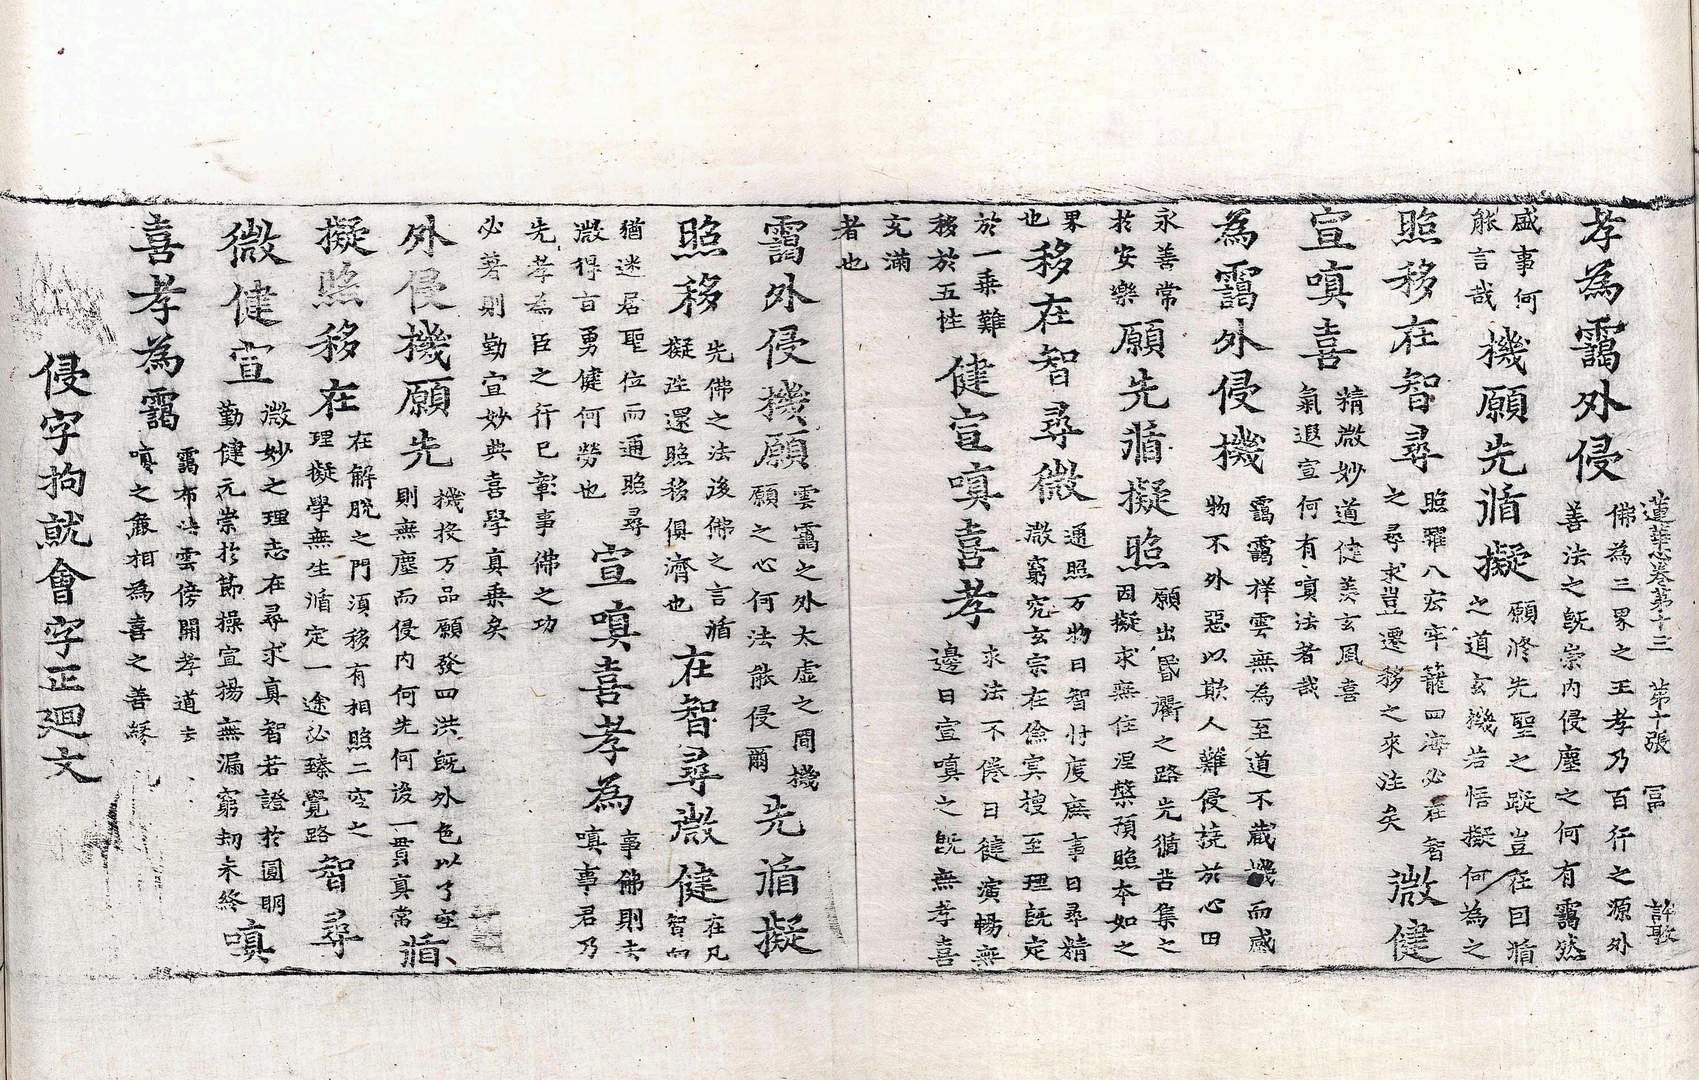 蓮華心卷第十三 第十張 冨 許敢
孝為靄外侵 佛為三界之王孝乃百行之源外 善法之既崇內侵塵之何有靄然
盛事何 能言哉 機願先循擬 願修先聖之蹤豈在囘循 之道玄機若悟擬何為之
照移在智尋 照耀八宏牢籠四海必在智 之尋求豈遷移之來注矣 微健
宣嗔喜 精微妙道健羨玄風喜 氣遐宣何有嗔法者哉
為靄外侵機 靄靄祥雲無為至道不嵗機而感 物不外惡以欺人難侵境於心田
永善常 於安樂 願先循擬照 願出昏衢之路先循苦集之 因擬求無住涅槃預照本如之
果 也 移在智尋微 通照万物日智忖度庶事日尋精 微窮究玄宗在儉寞擅至理既定
於一乗難 移於五性 健宣嗔喜孝 求法不倦日健演暢無 邊日宣嗔之既無孝喜
充滿 者也
靄外侵機願 雲靄之外太虛之間機 願之心何法能侵爾 先循擬
照移 先佛之法後佛之言循 擬迕還照移俱濟也 在智尋微健 在凡 智向
猶迷居聖位而通照尋 微得百勇健何勞也 宣嗔喜孝為 事佛則去 嗔事君乃
先孝為臣之行已彰事佛之功 必著則勤宣妙典喜學真乗矣
外侵機願先 機投万品願發四洪既外色以了空 則無塵而侵內何先何後一貫真常 循
擬照移在 在解脫之門須移有相照二空之 理擬學無生循定一途必臻覺路 智尋
微健宣 微妙之理志在尋求真智若證於圓明 勤健元崇於節操宣揚無漏窮劫未終 嗔
喜孝為靄 靄布法雲傍開孝道去 嗔之麁相為喜之善縁
侵字拘就會字正廻文